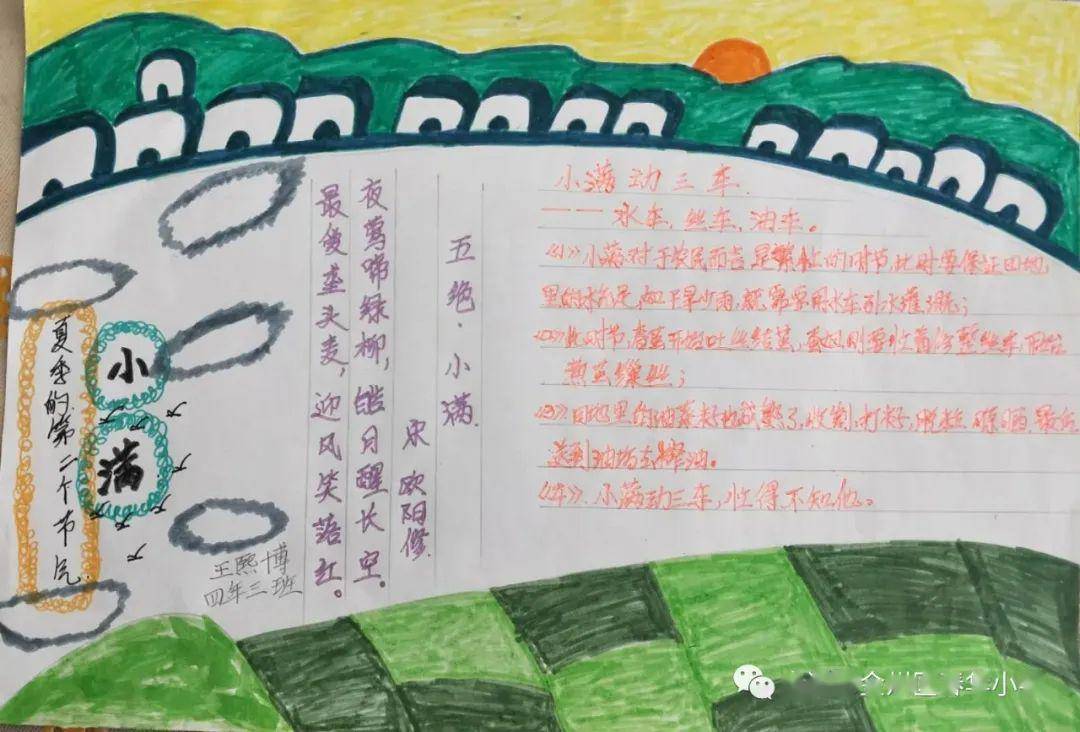 夏季的第二个节气
小
满
王熙博
四年三班
五绝·小满
宋 欧阳修
夜莺啼绿柳，皓月醒长空。
最爱垄头麦，迎风笑落红。
小满动三车
——水车、丝车、油车。
《1》小满对于农民而言是繁忙的时节，此时要保证田地
里的水充足，如下旱少雨，就需要用水车引水灌溉；
此时节，蚕茧开始吐丝结茧，蚕妇则要忙着
煮茧缫丝；
田地里的油菜籽也成熟了，收割，打籽，脱粒，晾晒，最后
送到油坊去榨油。
小满动三车，忙得不知他。